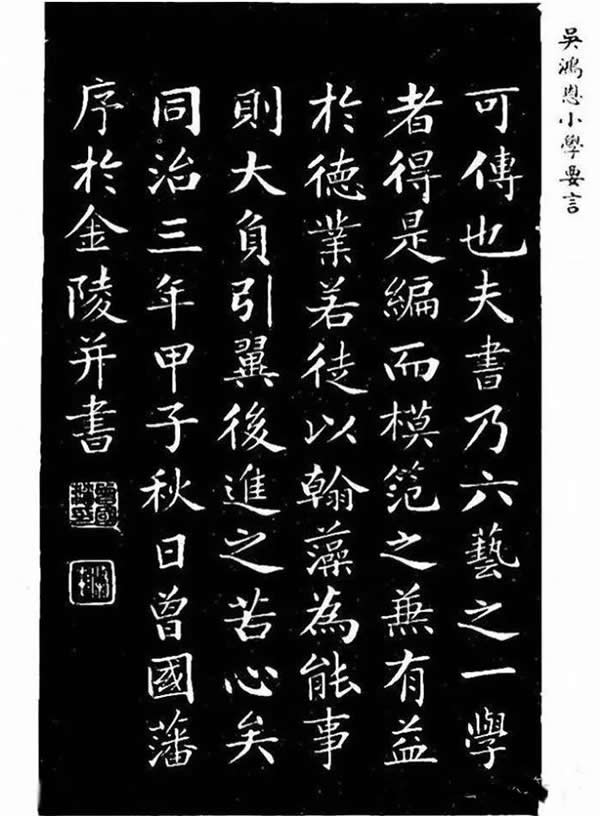 吳鴻恩小學要言
可傳也夫書乃六藝之一學
者得是編而模笵之兼有益
於德業若徒以翰藻為能事
則大負引翼後進之苦心矣
同治三年甲子秋日曾國藩
序於金陵并書